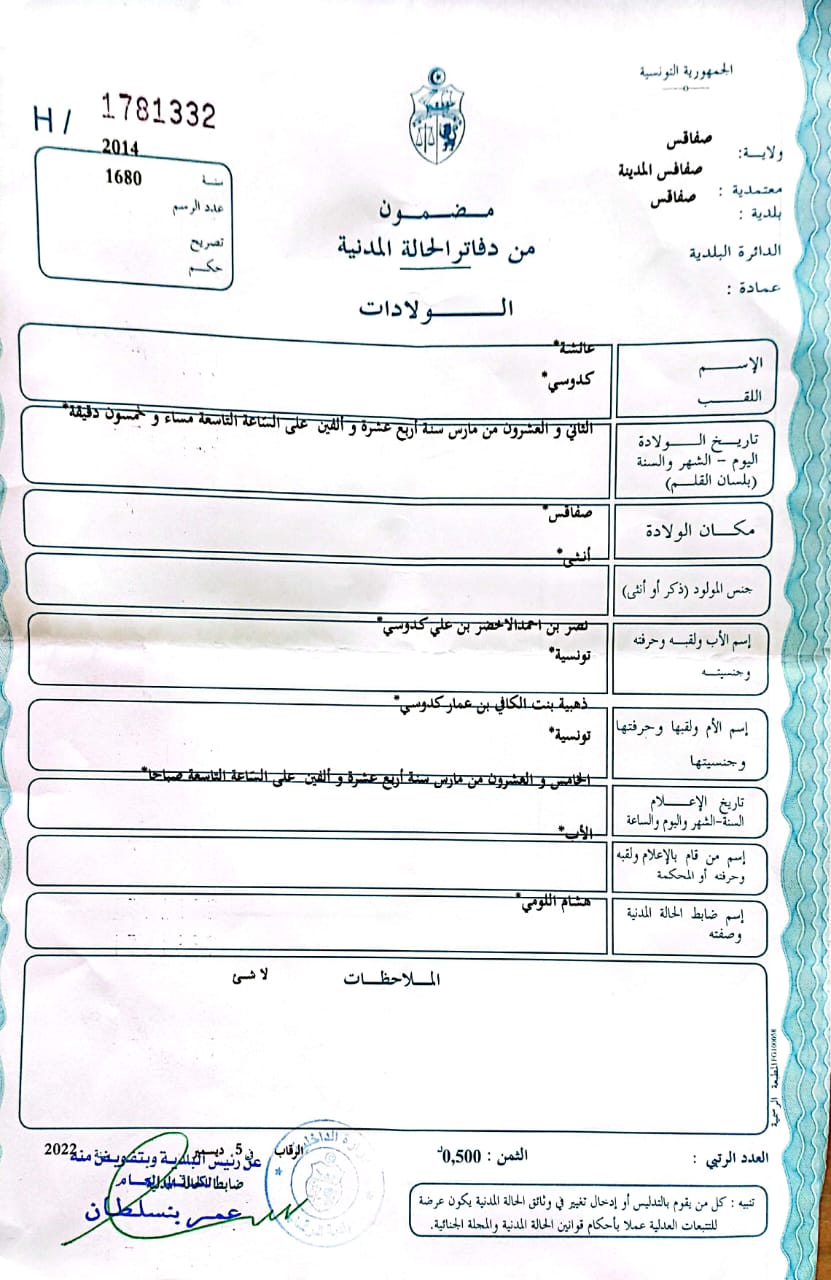 الجمهورية التونسية
H / 1781332
ولايـــة: صفاقس
معتمدية : صفاقس المدينة
بلدية : صفاقس
الدائرة البلدية
عمادة :
سنة 2014
عدد الرسم 1680
تصريح
حكم
مـضـمـون
من دفاتر الحالة المدنية
الـــولادات
الإســـم عائشة*
اللقـــب كدوسي*
تاريـخ الـــولادة
اليوم – الشهر والسنة
(بلسان القلـم)
الثاني و العشرون من مارس سنة أربع عشرة و ألفين على الساعة التاسعة مساء و خمسون دقيقة*
مكـــان الولادة صفاقس*
جنس المولود (ذكر أو أنثى) أنثى*
إسم الأب ولقبـه وحرفته نصر بن احمدالاخضر بن علي كدوسي*
وجنسيتـــه تونسية*
إسم الأم ولقبها وحرفتها ذهبية بنت الكافي بن عمار كدوسي*
وجنسيتها تونسية*
تاريخ الإعـــلام
السنة-الشهر واليوم والساعة
الخامس و العشرون من مارس سنة أربع عشرة و ألفين على الساعة التاسعة صباحا*
إسم من قام بالإعلام ولقبه
وحرفته أو المحكمة
الأب*
إسم ضابط الحالة المدنية
وصفته
هشام اللومي*
المـلاحظـات لا شئ
المطبعة الرسمية
العدد الرتبي :
الثمن : 0,500د
الرقاب في 5 ديسمبر 2022
عن رئيس البلدية وبتفويض منه
ضابط الحالة المدنية
عمر بنسلطان
تنبيه : كل من يقوم بالتدليس أو إدخال تغيير في وثائق الحالة المدنية يكون عرضة
للتتبعات العدلية عملا بأحكام قوانين الحالة المدنية والمجلة الجنائية.